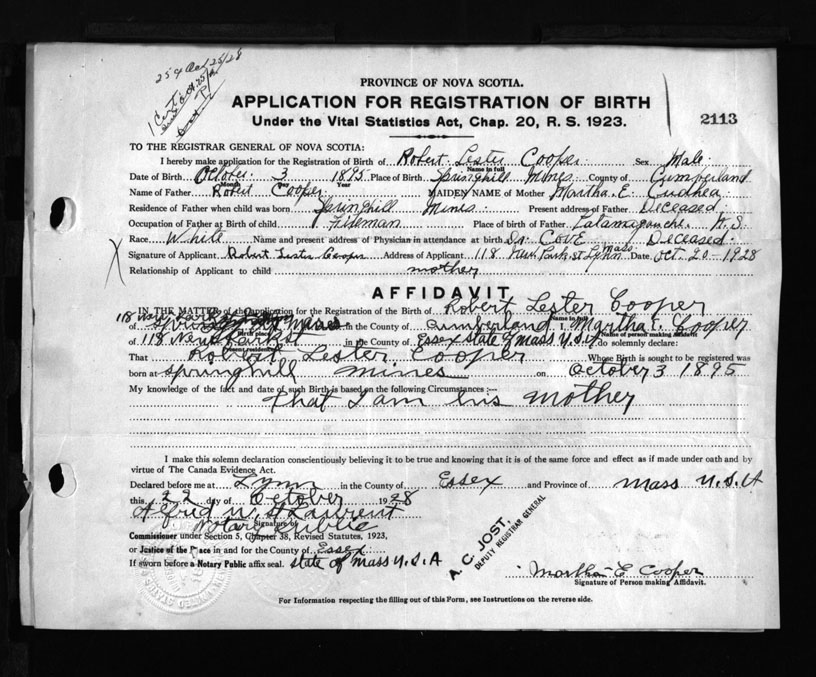 25¢ Oct 25/28
1 Cert
PROVINCE OF NOVA SCOTIA.
APPLICATION FOR REGISTRATION OF BIRTH
Under the Vital Statistics Act, Chap. 20, R. S. 1923.
2113
TO THE REGISTRAR GENERAL OF NOVA SCOTIA:
I hereby make application for the Registration of Birth of Robert Lester Cooper Sex Male
Name in full
Date of Birth October 3 1895 Place of Birth Springhill Mines County of Cumberland
Month Day Year
Name of Father Robert Cooper MAIDEN NAME of Mother Martha. E. Cudhea
Residence of Father when child was born Springhill Mines Present address of Father Deceased
Occupation of Father at Birth of child Fireman Place of birth of Father Tatamagouche N.S.
Race White Name and present address of Physician in attendance at birth Dr. COVE Deceased
Signature of Applicant Robert Lester Cooper Address of Applicant 118 New Park St Lynn Mass Date Oct. 20 1928
Relationship of Applicant to child mother
AFFIDAVIT
IN THE MATTER of Application for the Registration of the Birth of Robert Lester Cooper
Name in full
of Springhill Mines in the County of Cumberland I, Martha E. Cooper
Birth place
Name of person making affidavit
of 118 New Park St in the County of Essex state of Mass U.S.A do solemnly declare:
That Robert Lester Cooper Whose Birth is sought to be registered was
born at Springhill Mines on October 3 1895
My knowledge of the fact and date of such Birth is based on the following Circumstances:—
That I am his mother
I make this solemn declaration conscientiously believing it to be true and knowing that it is of the same force and effect as if made under oath and by
virtue of The Canada Evidence Act.
Declared before me at Lynn in the County of Essex and Province of Mass U.S.A
this 22 day of October 1928
Alfred W. St Laurent
Notary Public
Signature of
Commissioner under Section 5, Chapter 38, Revised Statutes, 1923,
or Justice of the Peace in and for the County of Essex
If sworn before a Notary Public affix seal. state of Mass U.S.A
A. C. JOST.
DEPUTY REGISTRAR GENERAL
Martha E Cooper
Signature of Person making Affidavit.
For Information respecting the filling out of this Form, see Instructions on the reverse side.